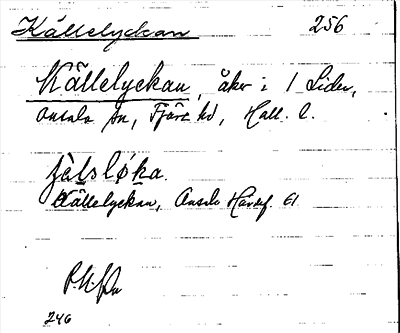 Källelyckan 256
Källelyckan, åker i 1 Lider,
Onsala sn, Fjäre hd, Hall. l.
Källelyckan, Onsala Hdskf. 61
246